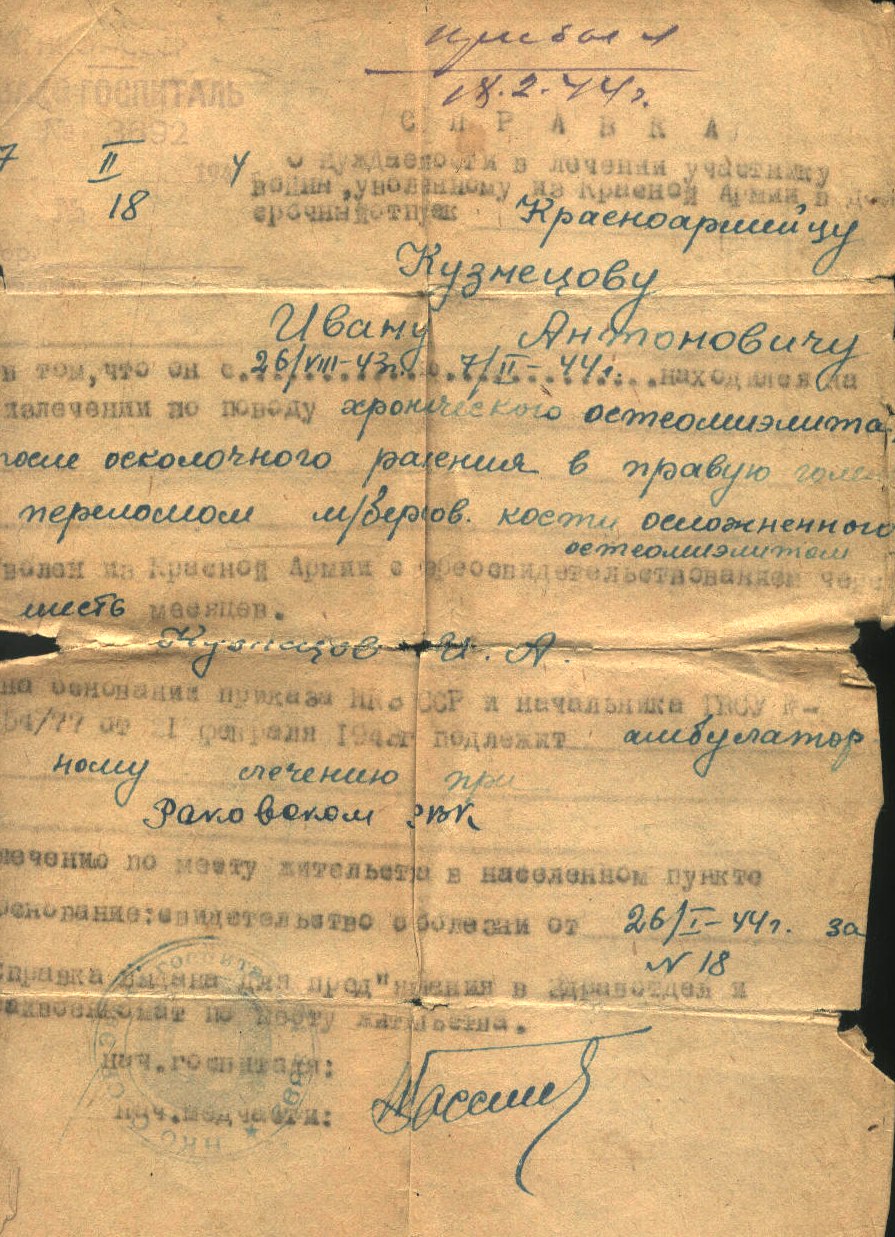 прибыл
18.2.44г.
ГОСПИТАЛЬ
№ 3892
СПРАВКА
7 II 194 4
о нуждаемости в лечении участнику
войны, уволенному из Красной Армии в
18
срочный отпуск Красноармейцу
Кузнецову
Ивану Антоновичу
в том, что он с 26/VIII-43г. 7/II-44г. находился на
излечении по поводу хронического остеомиэлита
после осколочного ранения в правую
переломом м/берцов. кости осложненного
остеомиэлитом
уволен из Красной Армии с переосвидетельствованием через
шесть месяцев.
Кузнецов И. А.
на основании приказа НКО СССР и начальника
64/77 от 21 февраля подлежит амбулатор
ному лечению при
Раковском РВК
лечению по месту жительства в населенном пункте
основание: свидетельство о болезни от 26/I-44г. за
N 18
Справка выдана для пред"явления в Здравотдел и
по месту жительства.
Нач. госпиталя:
Нач. медчасти: